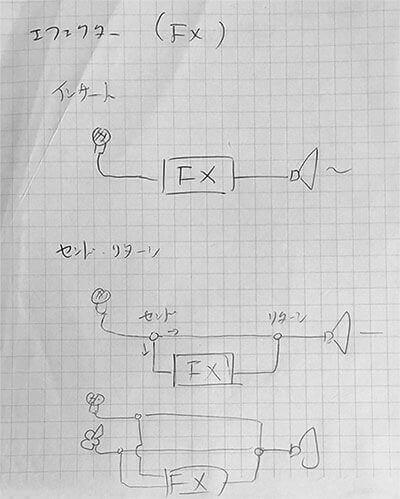 エフェクター (FX)
インサート
FX
センド・リターン
センド リターン
FX
FX